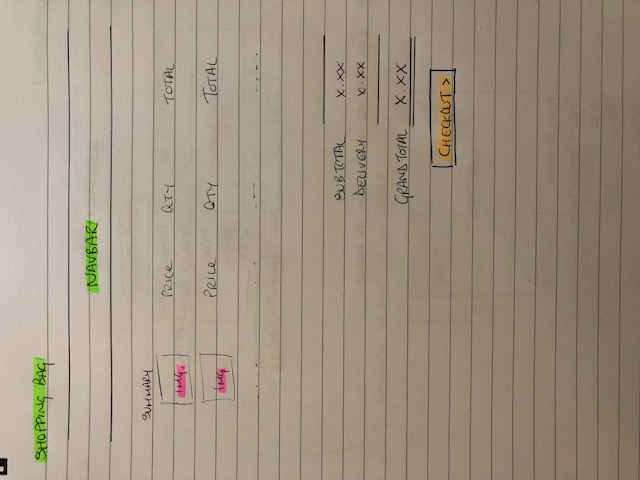 SHOPPING BAG
NAVBAR
SUMMARY
IMG. PRICE QTY TOTAL
IMG. PRICE QTY TOTAL
SUBTOTAL X.XX
DELIVERY X.XX
GRAND TOTAL X.XX
CHECKOUT >